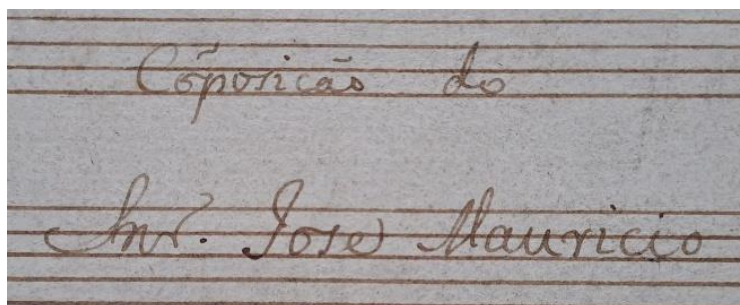 Cõposicão do
Snr. Jose Mauricio